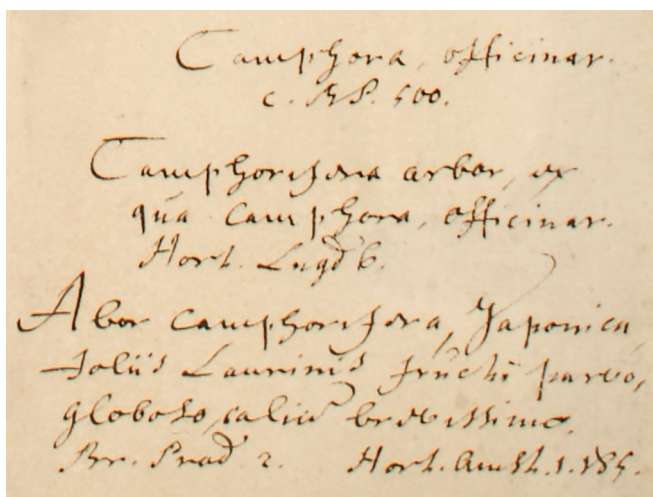 Camphora, officinar.
c. BP. 500.
Camphorifera arbor, ex
qua Camphora, officinar.
Hort. Lugd b.
Abor camphorifera, Japonica,
foliis Laurinis fructu parvo,
globoso, calice brevissimo.
Br. Prod 2. Hort. Amst. 1. 185.